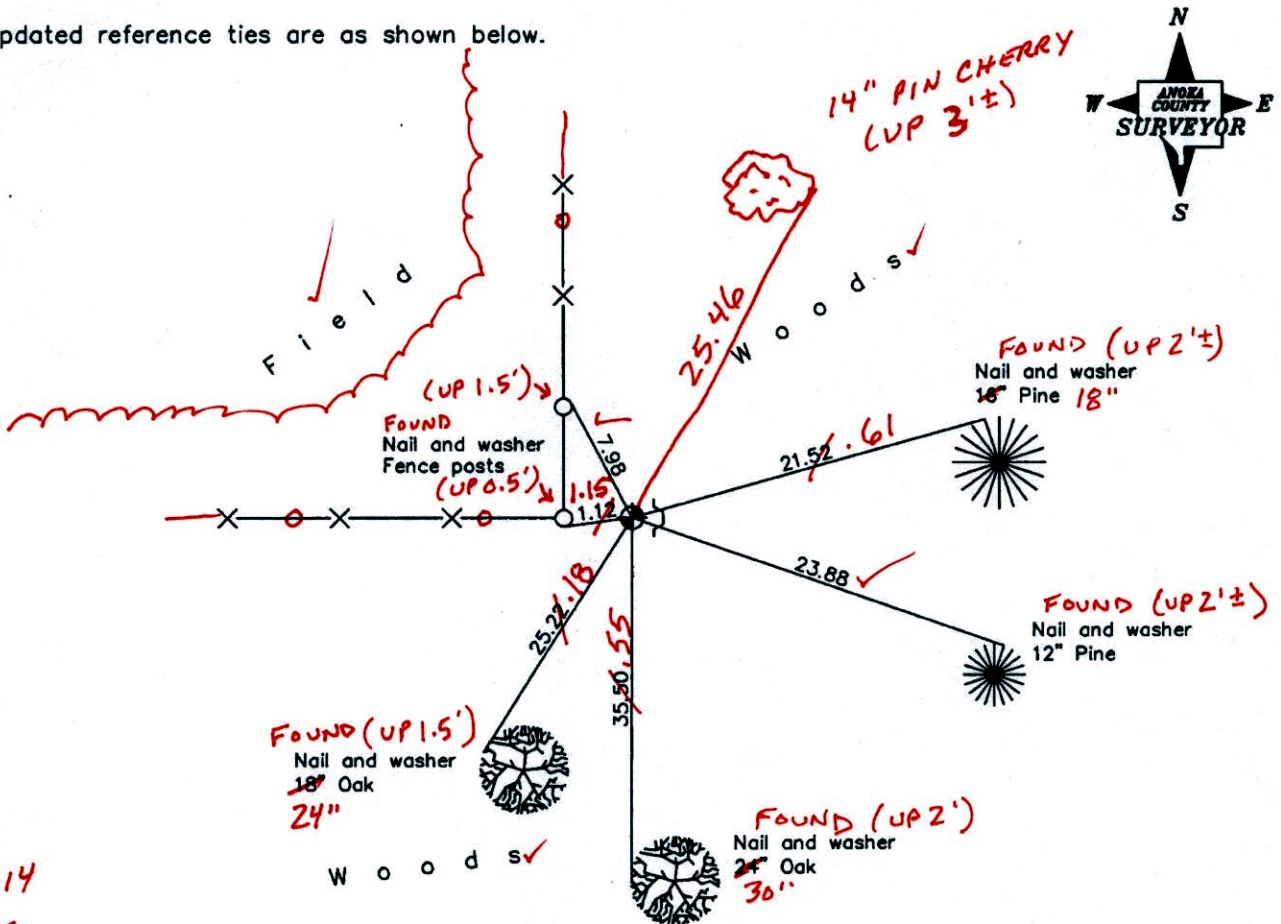 pdated reference ties are as shown below.
N
W
ANOKA
COUNTY
E
SURVEYOR
S
14" PIN CHERRY
(UP 3'±)
Field
Woods
25.46
FOUND (UP 2'±)
Nail and washer
Pine 18"
(UP 1.5')
FOUND
Nail and washer
Fence posts
(UP 0.5')
7.98
1.15
1.12
21.52 .61
23.88
FOUND (UP 2'±)
Nail and washer
12" Pine
25.22 .18
35.50 .55
FOUND (UP 1.5')
Nail and washer
18" Oak
24"
FOUND (UP 2')
Nail and washer
24" Oak
30"
Woods
14